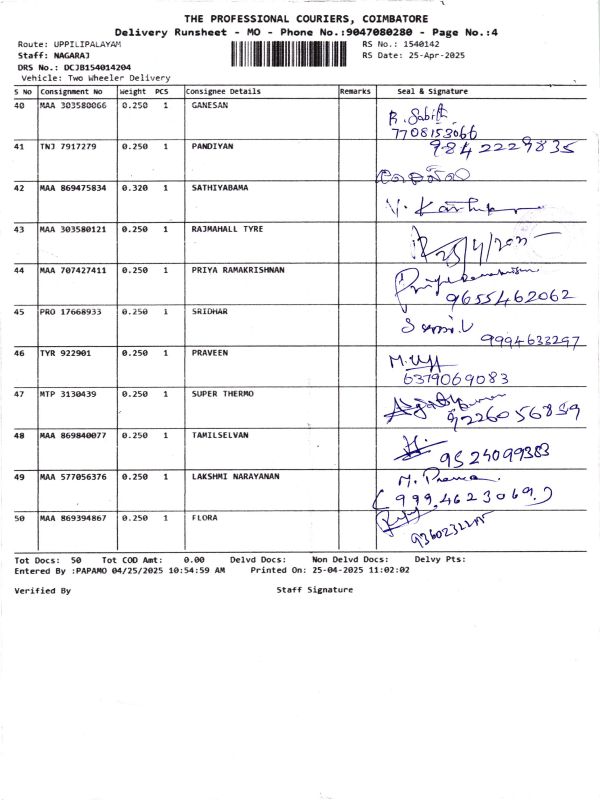 THE PROFESSIONAL COURIERS, COIMBATORE
Delivery Runsheet - MO - Phone No.:9047080280 - Page No.:4
Route: UPPILIPALAYAM RS No.: 1540142
Staff: NAGARAJ RS Date: 25-Apr-2025
DRS No.: DCJB154014204
Vehicle: Two Wheeler Delivery
S No Consignment No Weight PCS Consignee Details Remarks Seal & Signature
40 MAA 303580066 0.250 1 GANESAN
R. Sabith
7708153066
41 TNJ 7917279 0.250 1 PANDIYAN 9842229835
42 MAA 869475834 0.320 1 SATHIYABAMA
V.
43 MAA 303580121 0.250 1 RAJMAHALL TYRE
25/4/2025
44 MAA 707427411 0.250 1 PRIYA RAMAKRISHNAN
9655462062
45 PRO 17668933 0.250 1 SRIDHAR
9994633297
46 TYR 922901 0.250 1 PRAVEEN
6379069083
47 MTP 3130439 0.250 1 SUPER THERMO
9226056859
48 MAA 869840077 0.250 1 TAMILSELVAN
9524099383
49 MAA 577056376 0.250 1 LAKSHMI NARAYANAN M.
(999.4623069.)
50 MAA 869394867 0.250 1 FLORA
Tot Docs: 50 Tot COD Amt: 0.00 Delvd Docs: Non Delvd Docs: Delvy Pts:
Entered By :PAPAMO 04/25/2025 10:54:59 AM Printed On: 25-04-2025 11:02:02
Verified By Staff Signature